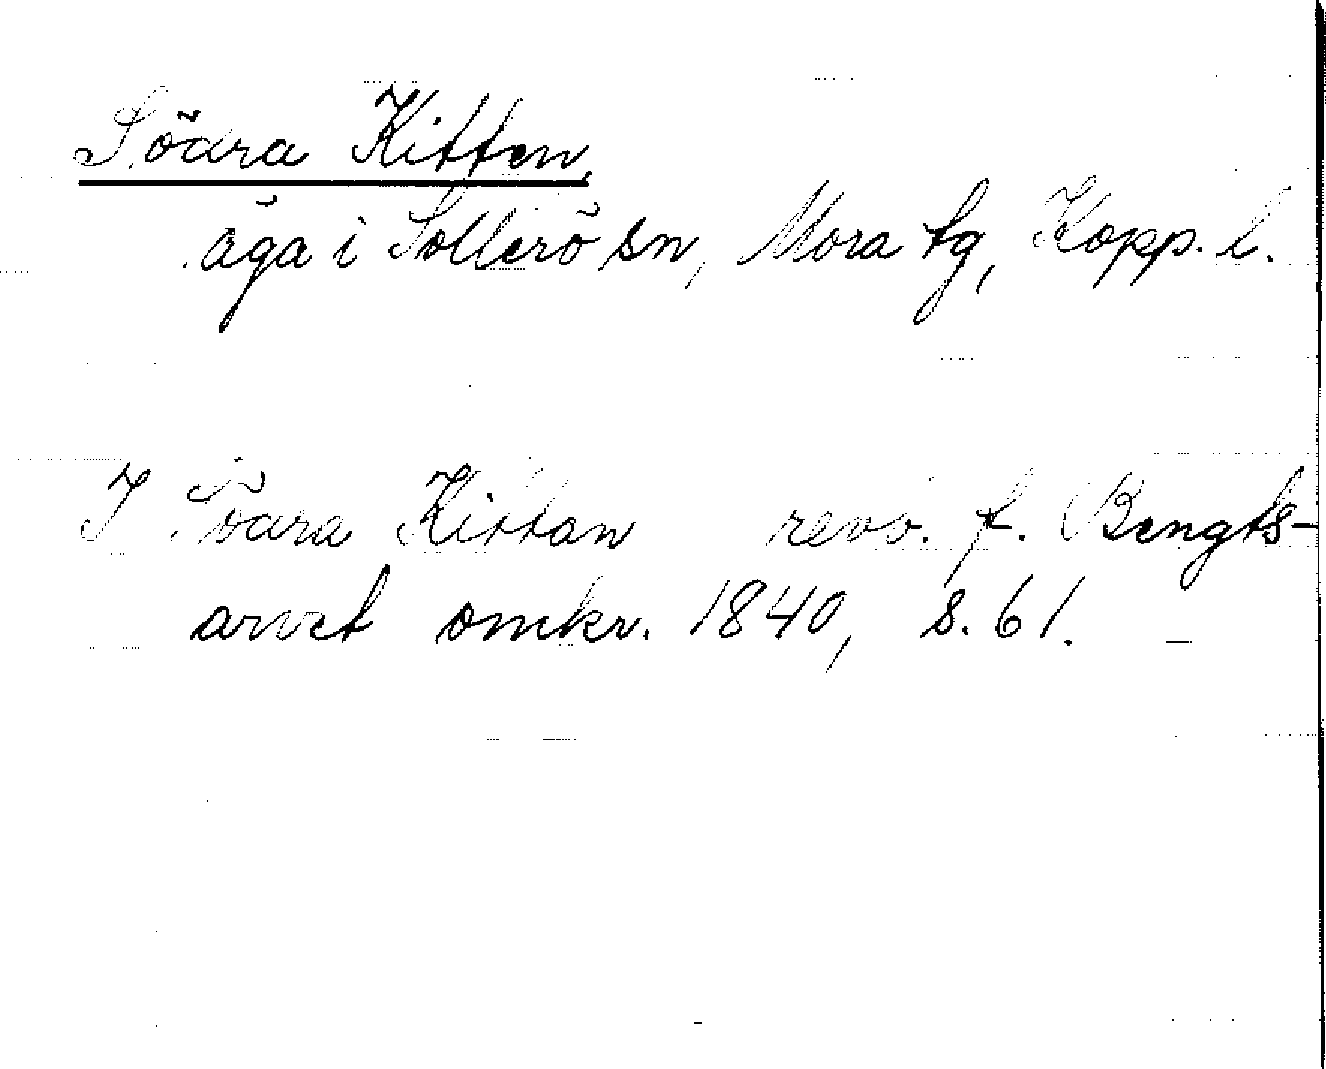 Söara Kitten,
äga i Sollerö sn, Mora tg, Kopp. l.
I Söara Kittan revb. f. Bengts-
arvet omkr. 1840, s. 61.